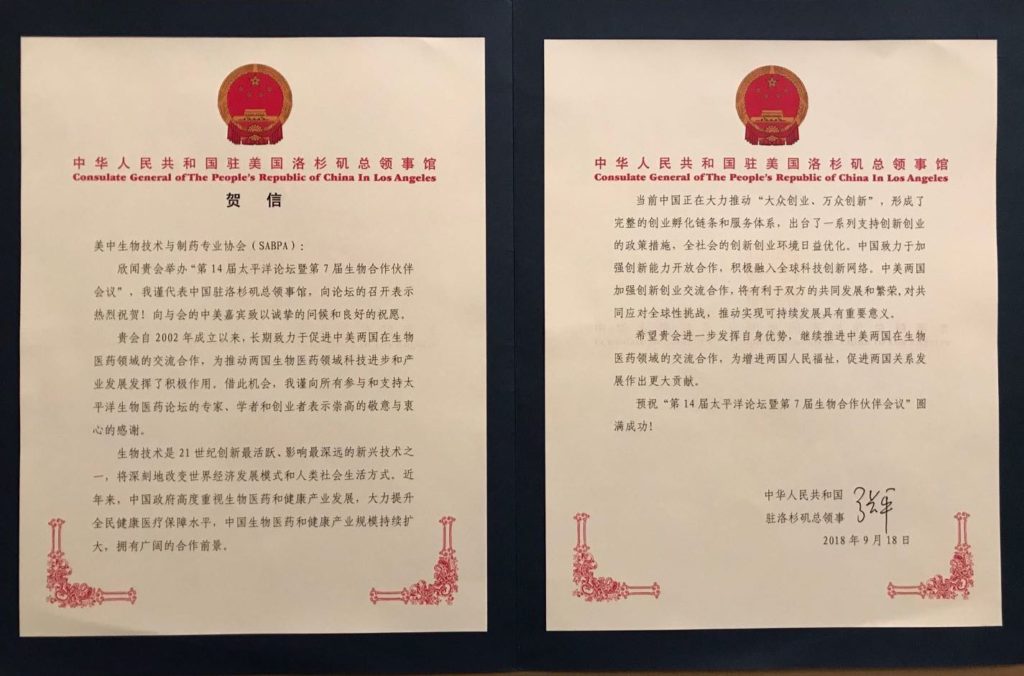 中华人民共和国驻美国洛杉矶总领事馆
Consulate General of The People's Republic of China In Los Angeles
贺 信
美中生物技术与制药专业协会（SABPA）：
欣闻贵会举办“第14届太平洋论坛暨第7届生物合作伙伴
会议”，我谨代表中国驻洛杉矶总领事馆，向论坛的召开表示
热烈祝贺！向与会的中美嘉宾致以诚挚的问候和良好的祝愿。
贵会自2002年成立以来，长期致力于促进中美两国在生物
医药领域的交流合作，为推动两国生物医药领域科技进步和产
业发展发挥了积极作用。借此机会，我谨向所有参与和支持太
平洋生物医药论坛的专家、学者和创业者表示崇高的敬意与衷
心的感谢。
生物技术是21世纪创新最活跃、影响最深远的新兴技术之
一，将深刻地改变世界经济发展模式和人类社会生活方式。近
年来，中国政府高度重视生物医药和健康产业发展，大力提升
全民健康医疗保障水平，中国生物医药和健康产业规模持续扩
大，拥有广阔的合作前景。
中华人民共和国驻美国洛杉矶总领事馆
Consulate General of The People's Republic of China In Los Angeles
当前中国正在大力推动“大众创业、万众创新”，形成了
完整的创业孵化链条和服务体系，出台了一系列支持创新创业
的政策措施，全社会的创新创业环境日益优化。中国致力于加
强创新能力开放合作，积极融入全球科技创新网络。中美两国
加强创新创业交流合作，将有利于双方的共同发展和繁荣，对共
同应对全球性挑战，推动实现可持续发展具有重要意义。
希望贵会进一步发挥自身优势，继续推进中美两国在生物
医药领域的交流合作，为增进两国人民福祉，促进两国关系发
展作出更大贡献。
预祝“第14届太平洋论坛暨第7届生物合作伙伴会议”圆
满成功！
中华人民共和国
驻洛杉矶总领事
2018年9月18日